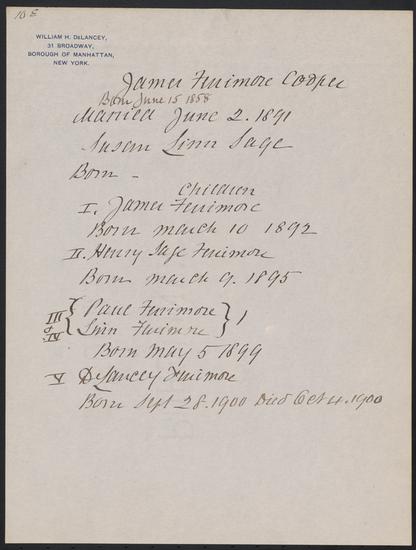 10 E
WILLIAM H. DELANCEY,
31 BROADWAY,
BOROUGH OF MANHATTAN,
NEW YORK.
James Fenimore Cooper
Born June 15 1858
Married June 2. 1891
Susan Linn Sage
Born -
Children
I. James Fenimore
Born March 10 1892
II. Henry Sage Fenimore
Born March 9. 1895
III { Paul Fenimore }
& IV { Linn Fenimore } 1
Born May 5 1899
V DeLancey Fenimore
Born Sept 28. 1900 Died Oct 4. 1900